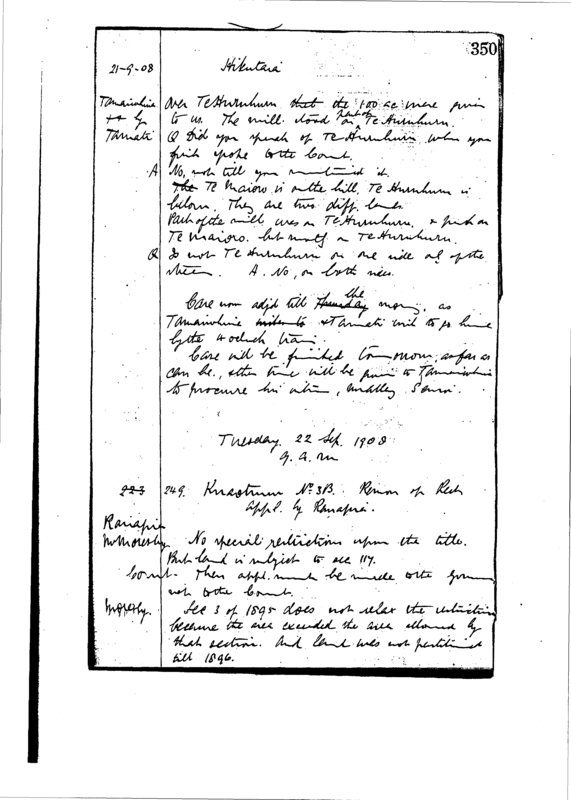 350
21-9-08 Hikutaia
Tamaiwhia Over Te Huruhuru that the 100 ac were given
xx by to us. The mill stood part of on Te Huruhuru.
Tamati Q Did you speak of Te Huruhuru when you
first spoke to the Court.
A No, not till you mentioned it.
The Te Maioro is on the hill, Te Huruhuru is
below. They are two diff. lands.
Part of the mill was on Te Huruhuru, & part on
Te Maioro. but mostly on Te Huruhuru.
Q Is not Te Huruhuru on one side only of the
stream. A. No, on both sides.
Case now adjd till Thursday the morng, as
Tamaiwhia & Tamati wish to go home
by the 4 oclock train.
Case will be finished tomorrow, as far as
can be, & then time will be given to Tamaiwhia
to procure his witness,
Tuesday. 22 Sep. 1908
9. a.m
223 249. No 3B. Remov of Rest
Appl. by Ranapia.
Ranapia
Mr Moresby No special restrictions upon the title.
But land is subject to sec 117.
Court. Then appl. must be made to the Govern
not to the Court.
Moresby. Sec 3 of 1895 does not relax the restriction
because the area exceeded the area allowed by
that section. And land was not partitioned
till 1896.